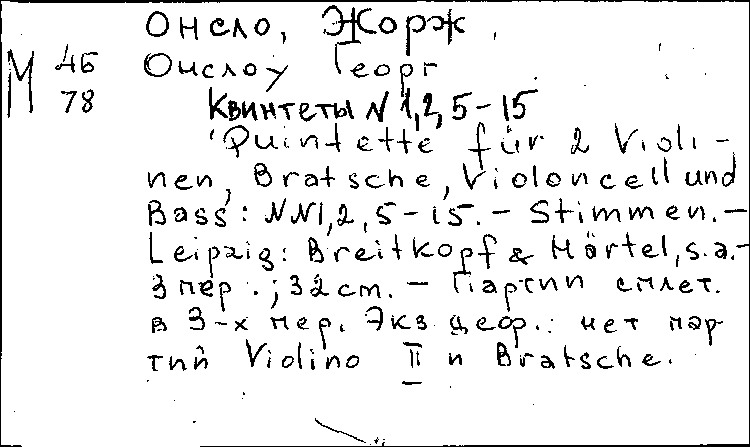 Онсло, Жорж.
М 46 Онслоу Георг
78 Квинтеты N 1,2,5-15
Quintette für 2 Violi-
nen, Bratsche, Violoncell und
Bass: NN1,2,5-15. - Stimmen. -
Leipzig: Breitkopf & Härtel, s.a.-
3 пер.; 32cm. - Партии сплет.
в 3-х пер. Экз. дефр.: нет пар
тий Violino II и Bratsche.